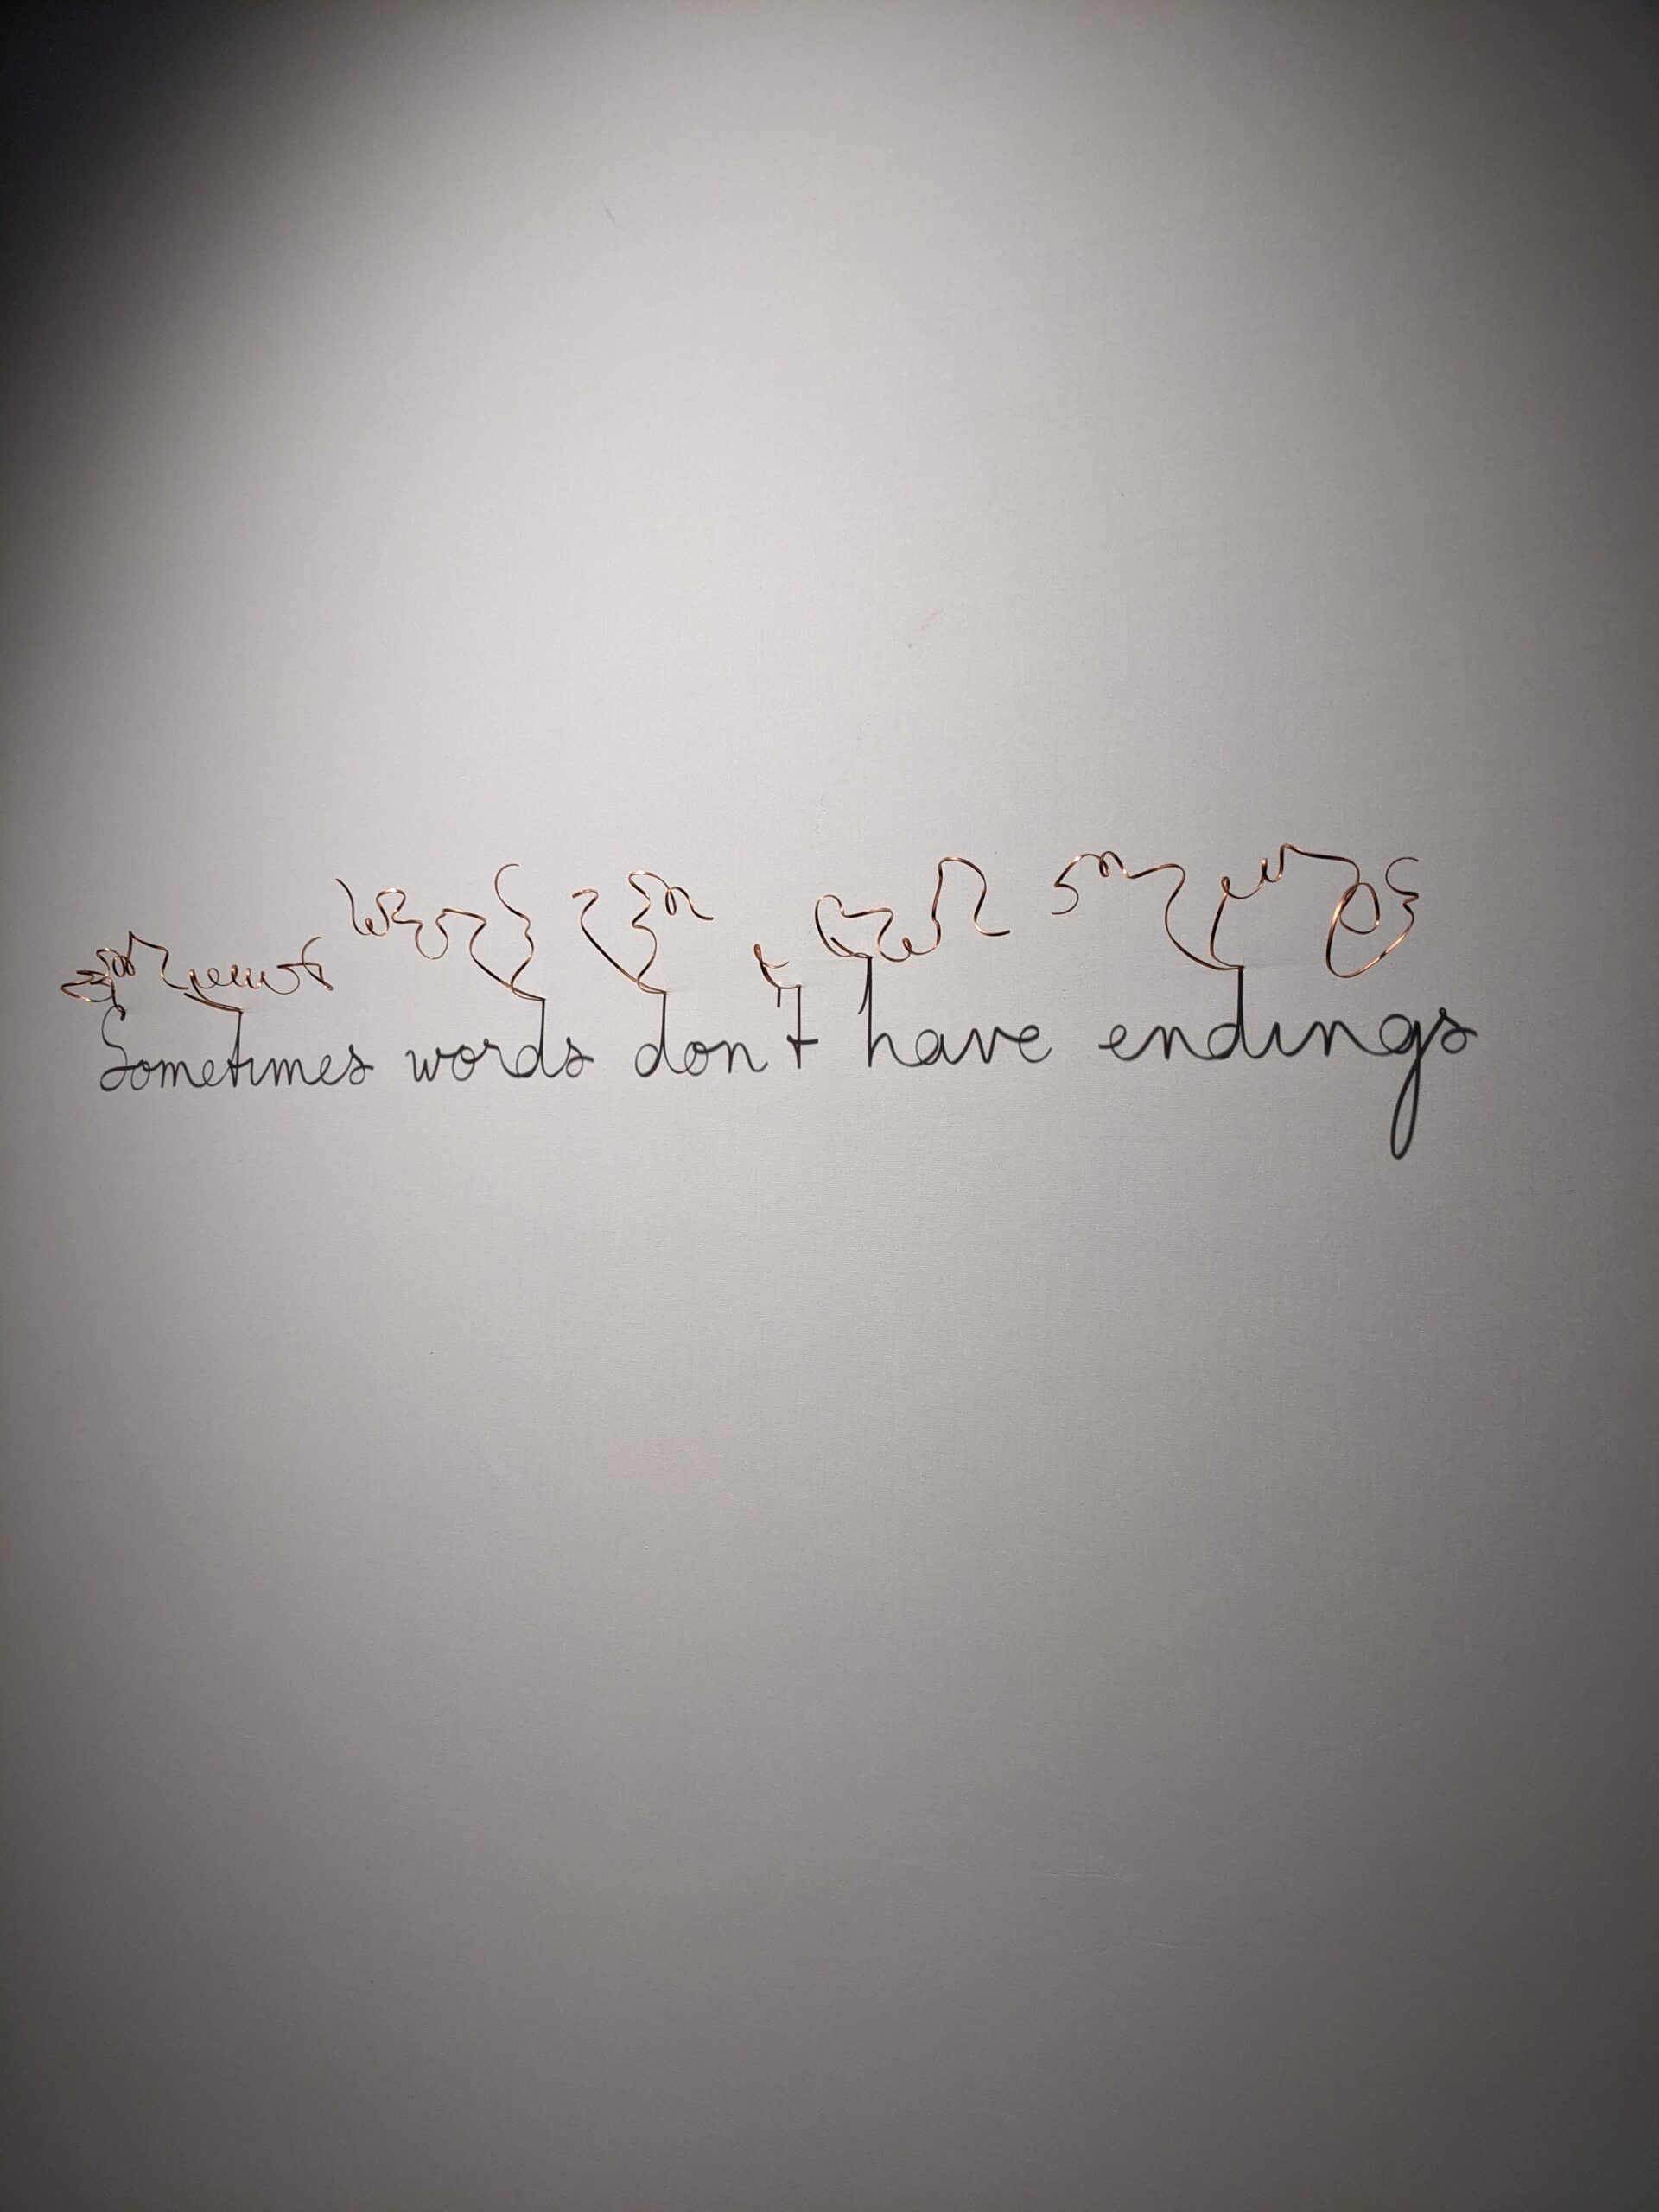 Sometimes words don't have endings